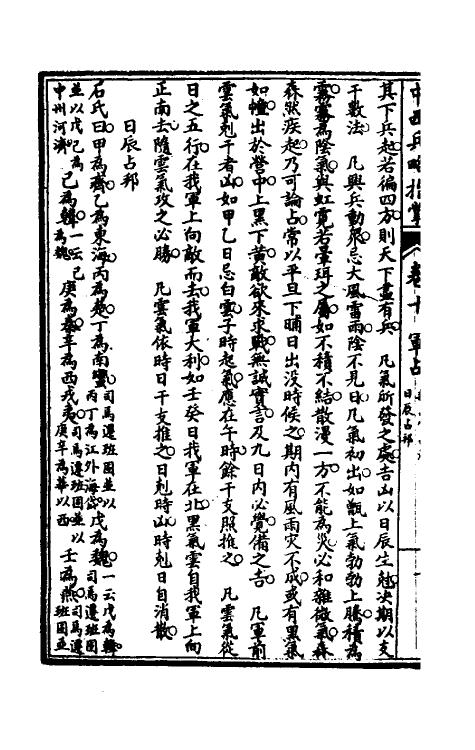 中西兵略指掌 卷十 軍占
日辰占邦
其下兵起若徧四方則天下盡有兵 凡氣所發之處吉凶以日辰生尅决期以支
干數法 凡興兵動衆忌大風雷雨陰不見日凡氣初出如甑上氣勃勃上騰積為
霧霧為陰氣與虹霓若暈珥之屬如不積不結散漫一方不能為災必和雜微氣森
森然疾起乃可論占常以平旦下晡日出没時候之期内有風雨灾不成或有黑氣
如幢出於營中上黑下黄敵欲來求戰無誠實言及九日内必覺備之吉 凡軍前
雲氣剋干者凶如甲乙日忌白雲子時起氣應在午時餘干支照推之 凡雲氣從
日之五行在我軍上向敵而去我軍大利如壬癸日我軍在北黑氣雲自我軍上向
正南去隨雲氣攻之必勝 凡雲氣依時日干支推之日剋時凶時剋日自消散
日辰占邦
石氏曰甲為齊乙為東海丙為楚丁為南蠻司馬遷班固並以丙丁為江外海岱戊為魏一云戊為韓司馬遷班固
並以戊己為中州河濟己為韓一云己為魏庚為秦辛為西戎夷司馬遷班固並以庚辛為華以西壬為燕司馬遷班固並